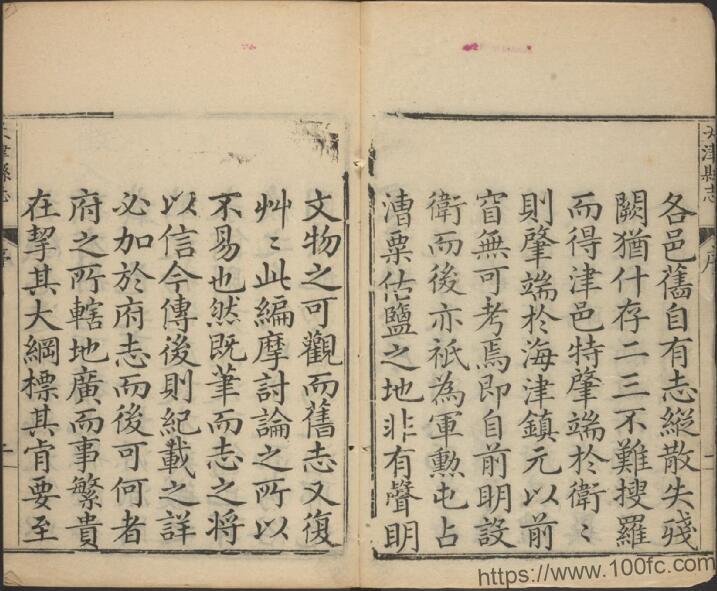 天津縣志
序
各邑舊自有志縱散失殘
闕猶什存二三不難搜羅
而得津邑特肇端於衛〻
則肇端於海津鎮元以前
窅無可考焉即自前明設
衛而後亦祇為軍勲屯占
漕粟佔鹽之地非有聲明
文物之可觀而舊志又復
艸〻此編摩討論之所以
不易也然既筆而志之將
以信今傳後則紀載之詳
必加於府志而後可何者
府之所轄地廣而事繁貴
在挈其大綱標其肯要至
津縣志
序
https://www.100fc.com